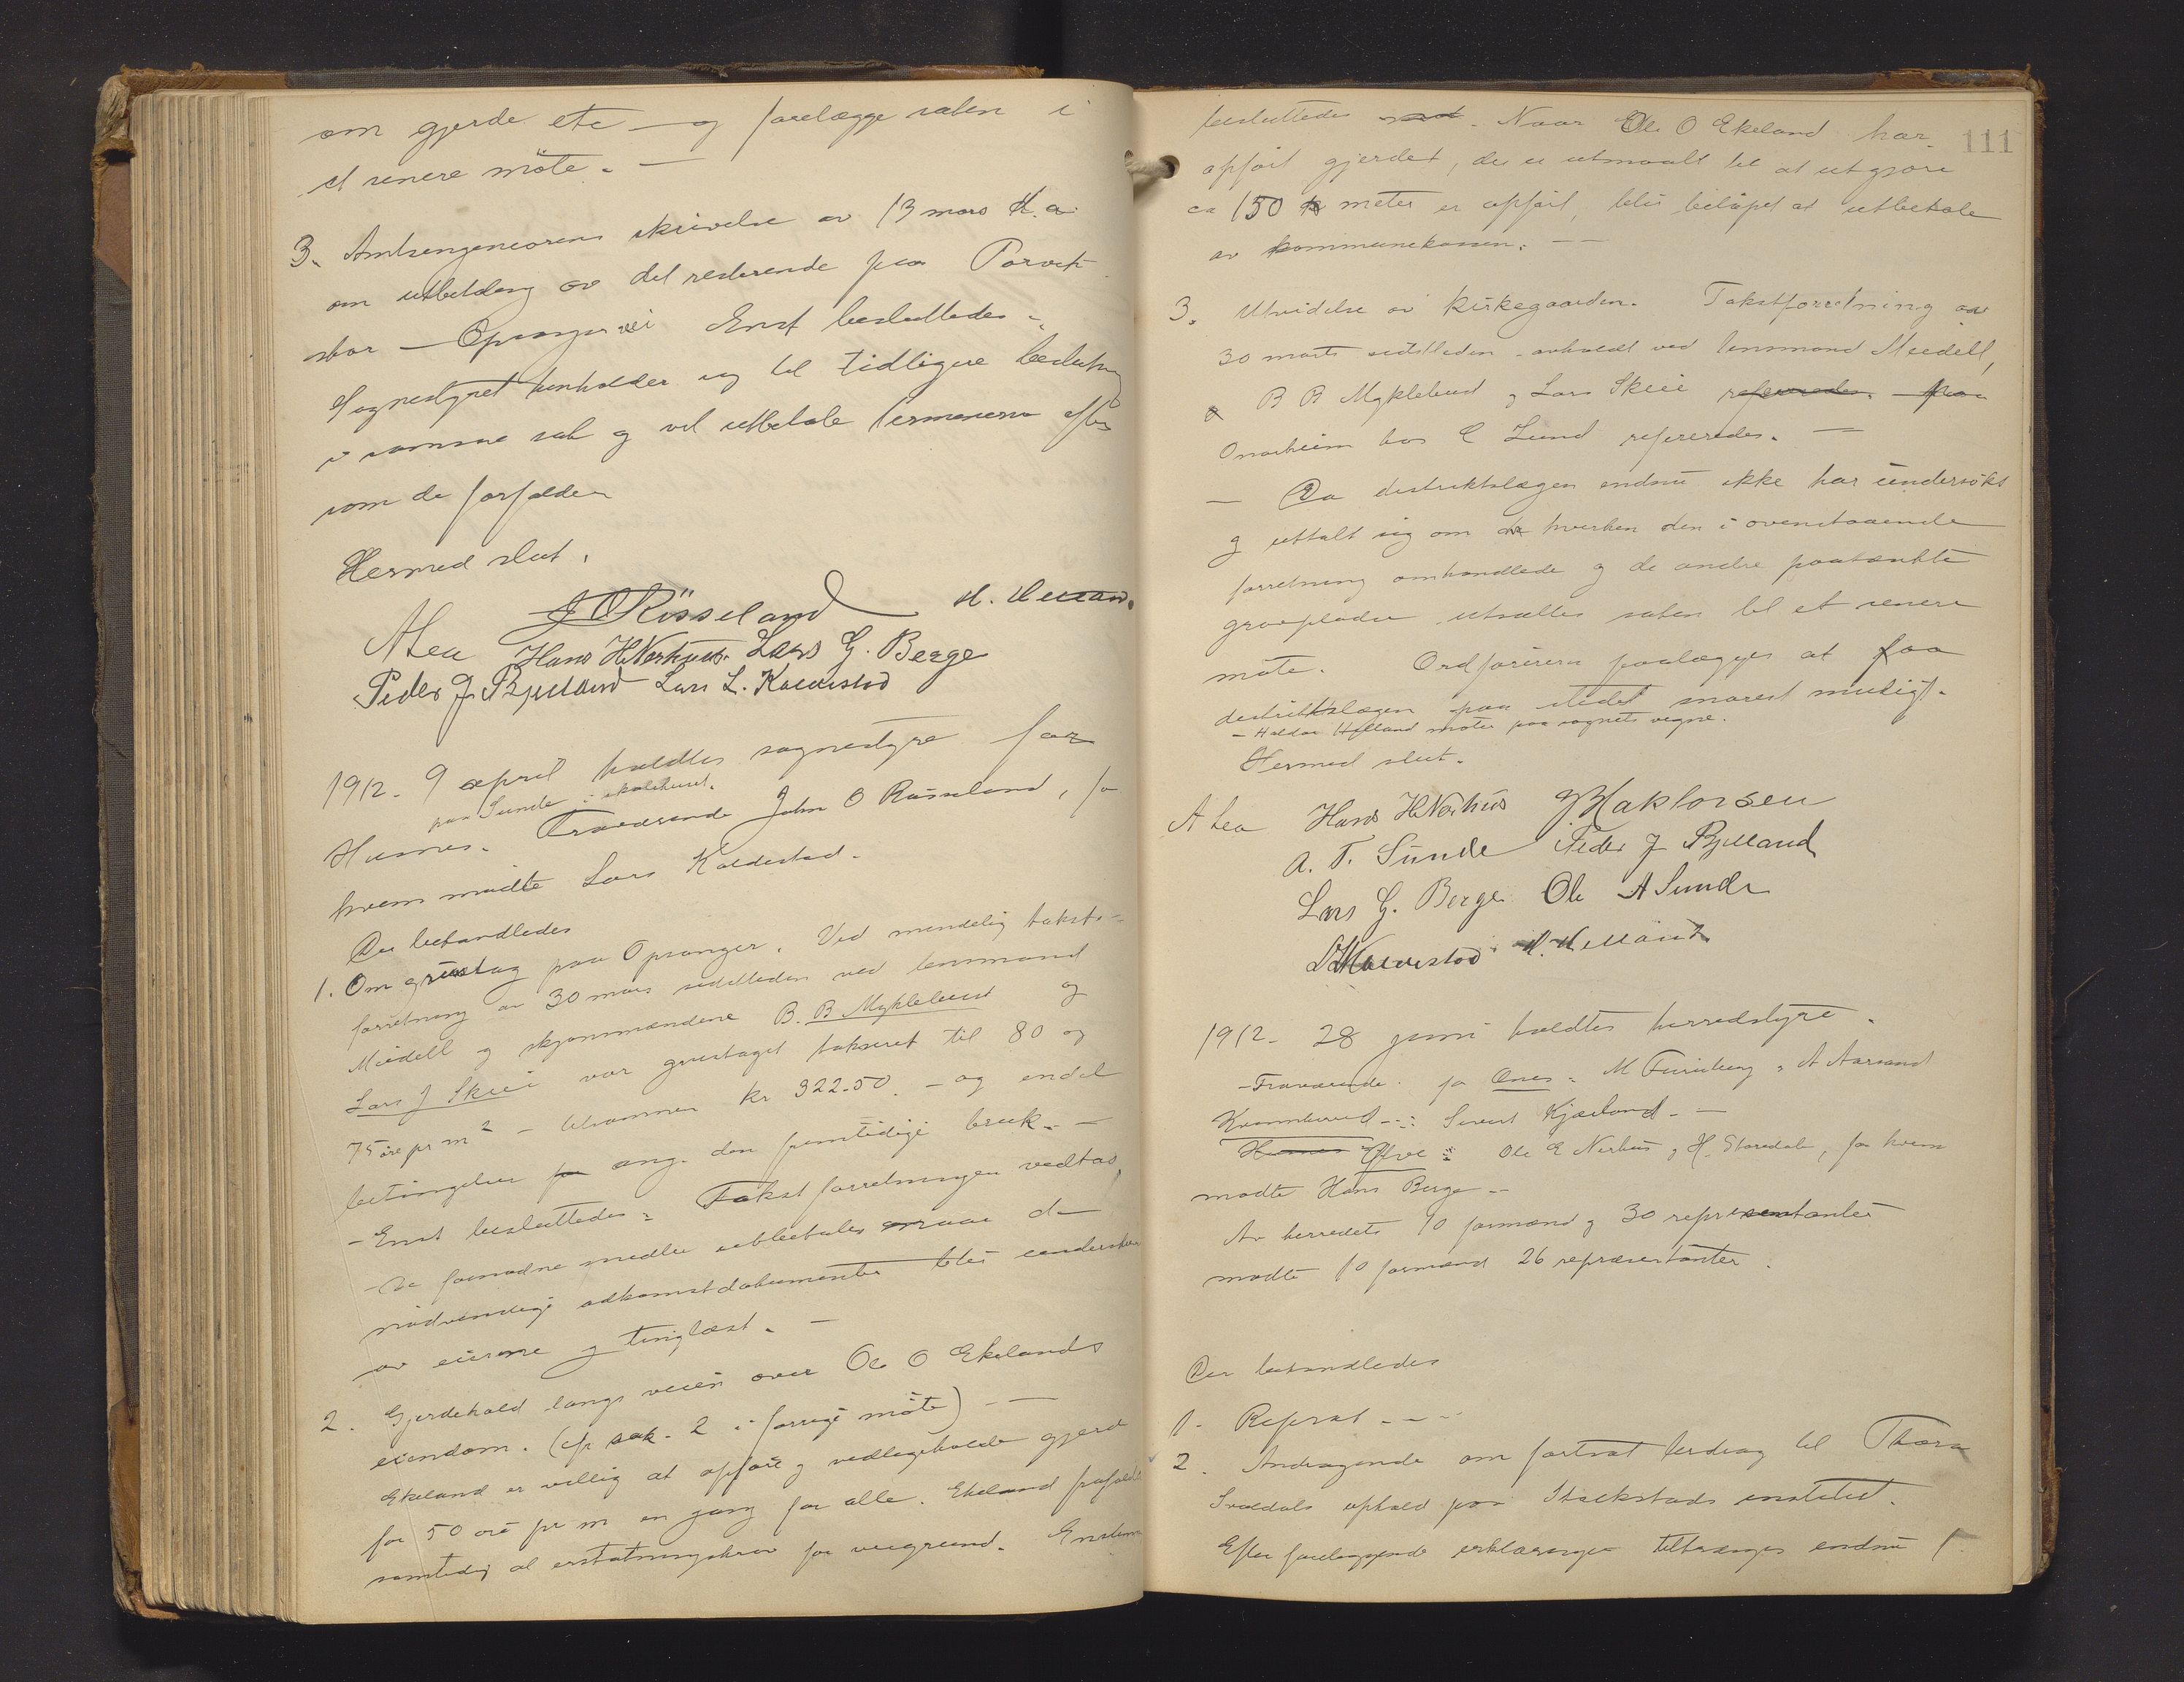 om gjerde etc — og forelægge saken i
et senere möte. —
3. Amtsingeniörens skrivelse av 13 mars d. a.
om utbetaling av det resterende paa Porvik
— Opsanger vei Enst besluttedes:
Sognestyret henholder sig til tidligere beslutning
i samme sak og vil utbetale terminerne efter
som de forfalder
Hermed slut.
J O Røsseland H. Helland.
A Lea Hans H. Nerhus. Lars G. Berge
Peder J. Bjelland Lars L. Kaldestad
1912. 9 april holdtes sognestyre for
paa Sunde i skolehuset.
Husnes. Fraværende John O Røsseland, for
hvem mødte Lars Kaldestad.
Der behandledes
1. Om grustag paa Opsanger. Ved mindelig takst-
forretning av 30 mars sidstleden ved lensmand
Meidell og skjønsmændene B. B Myklebust og
Lars J Skeie var grustaget takseret til 80 og
75 øre pr m² – tilsammen kr 322.50 – og endel
betingelser ang. den fremtidige bruk. –
– Enst besluttedes: Takstforretningen vedtas,
– De fornødne midler utbetales naar de
nødvendige adkomstdokumenter blir underskrevet
av eierne og tinglæst. –
2. Gjerdehold langs veien over Ole O Ekelands
eiendom. (cfr sak. 2 i forrige möte) –
Ekeland er villig at opføre og vedlikeholde gjerde
for 50 øre pr m en gang for alle. Ekeland frafalder
samtidig al erstatningskrav for veigrund. Enstem
111
besluttedes Naar Ole O Ekeland har
opført gjerdet, der er utmaalt til at utgjøre
ca 150 meter er opført, blir beløpet at utbetale
av kommunekassen. —
3. Utvidelse av kirkegaarden. Takstforretning av
30 marts sidstleden avholdt ved lensmand Meidell,
B B Myklebust og Lars Skeie refereredes. paa
Onarheim hos C Lund refereredes. —
— Da distriktslægen endnu ikke har undersøkt
og uttalt sig om hverken den i ovenstaaende
forretning omhandlede og de andre paatænkte
gravpladse utsættes saken til et senere
möte. Ordføreren paalægges at faa
distriktslægen paa stedet snarest muligt.
– Haldor Helland møter paa sognets vegne.
Hermed slut.
A Lea Hans H. Nerhus J Haktorsen
A. T. Sunde Peder J Bjelland
Lars G. Berge Ole A Sunde
L L Kaldestad H. Helland
1912. 28 juni holdtes herredstyre.
– Fraværende fra Ænes: M Furuberg, A Aarsand
Kvinnherred –: Sivert Kjærland. –
Husnes Ølve: Ole E Nerhus og H. Storedal, for hvem
mødte Hans Berge –
Av herredets 10 formænd og 30 repræsentanter
mødte 10 formænd 26 repræsentanter.
Der behandledes
1. Referat – – –
2. Andragende om fortsat bidrag til Thora
Svaldals ophold paa Stackstads institut.
Efter foreliggende erklæringer tiltrænges endnu 1